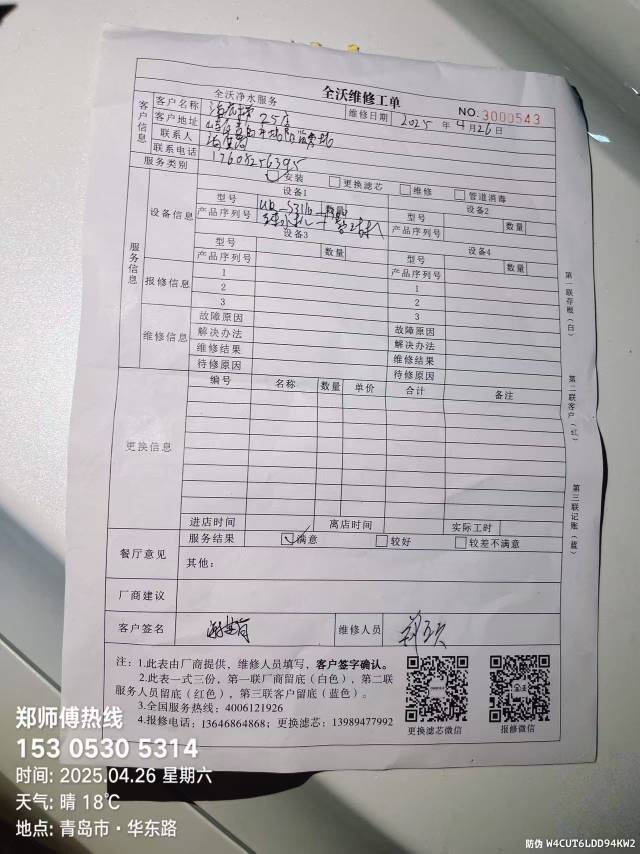 全沃净水服务 全沃维修工单
NO:3000543
维修日期 2025 年 4 月 26 日
客户信息
客户名称 25店
客户地址
联系人
联系电话 17608256395
服务类别 安装 更换滤芯 维修 管道消毒
服务信息
设备信息 设备1 设备2
型号 数量 型号 数量
产品序列号 产品序列号
设备3 设备4
型号 数量 型号 数量
产品序列号 产品序列号
报修信息 1 1
2 2
3 3
维修信息 故障原因 故障原因
解决办法 解决办法
维修结果 维修结果
待修原因 待修原因
更换信息 编号 名称 数量 单价 合计 备注
进店时间 离店时间 实际工时
餐厅意见 服务结果 满意 较好 较差不满意
其他:
厂商建议
客户签名 维修人员
注:1.此表由厂商提供,维修人员填写,客户签字确认。
2.此表一式三份,第一联厂商留底(白色),第二联
服务人员留底(红色),第三联客户留底(蓝色)。
3.全国服务热线:4006121926
4.报修电话:13646864868;更换滤芯:13989477992
更换滤芯微信 报修微信
第一联存根(白)
第二联客户(红)
第三联记账(蓝)
郑师傅热线
153 0530 5314
时间: 2025.04.26 星期六
天气: 晴 18℃
地点: 青岛市·华东路
防伪 W4CUT6LDD94KW2